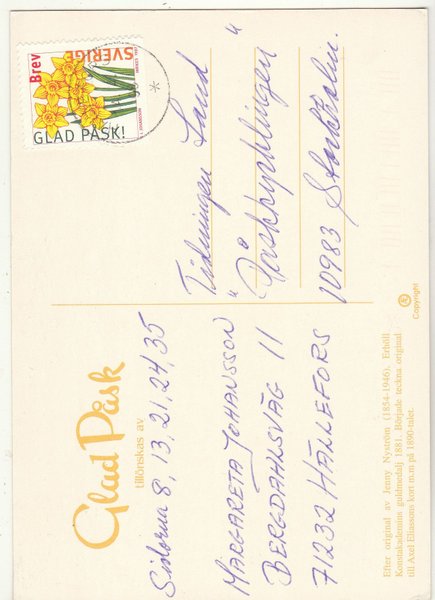 Brev
SVERIGE
GLAD PÅSK!
Glad Påsk
tillönskas av
Sidorna 8, 13, 21, 24, 35
MARGARETA JOHANSSON
BERGDAHLSVÄG 11
71232 HÄLLEFORS
Tidningen Land
"Påskpysslingen"
10983 Stockholm.
Efter original av Jenny Nyström (1854-1946). Erhöll
Konstakademins guldmedalj 1881. Började teckna original
till Axel Eliassons kort m.m på 1890-talet.
Copyright